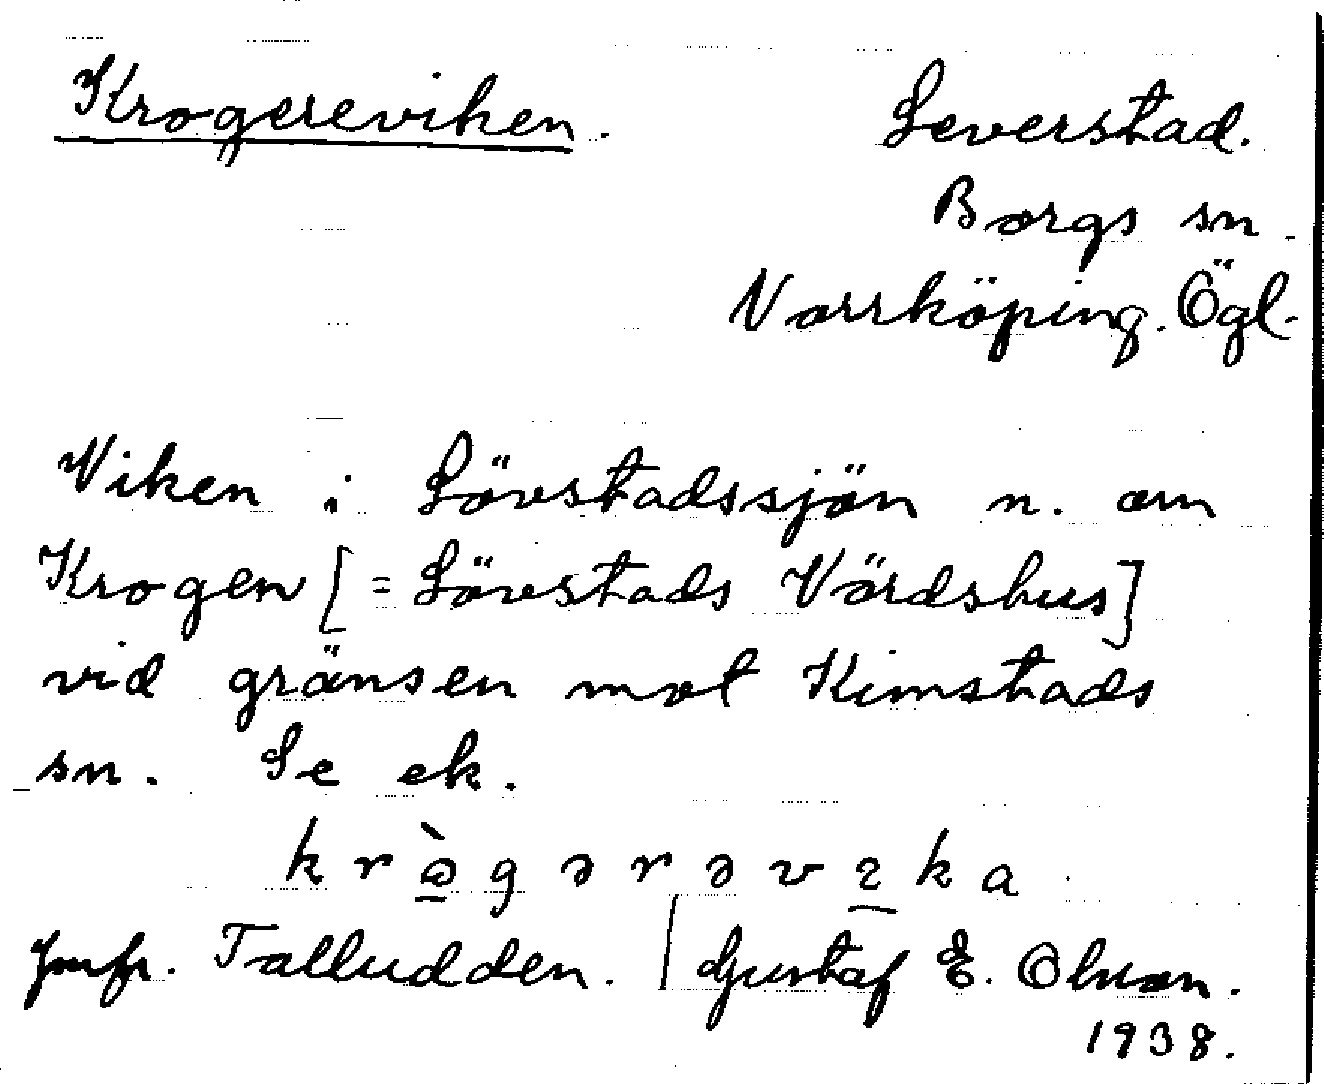 Krogereviken.
Leverstad.
Borgs sn.
Norrköping. Ögl.
Viken i Lövstadssjön n. om
Krogen [= Lövstads Värdshus]
vid gränsen mot Kimstads
sn. Se ek.
krògərəvıka
Jmfr. Talludden. | Gustaf E. Olsson.
1938.